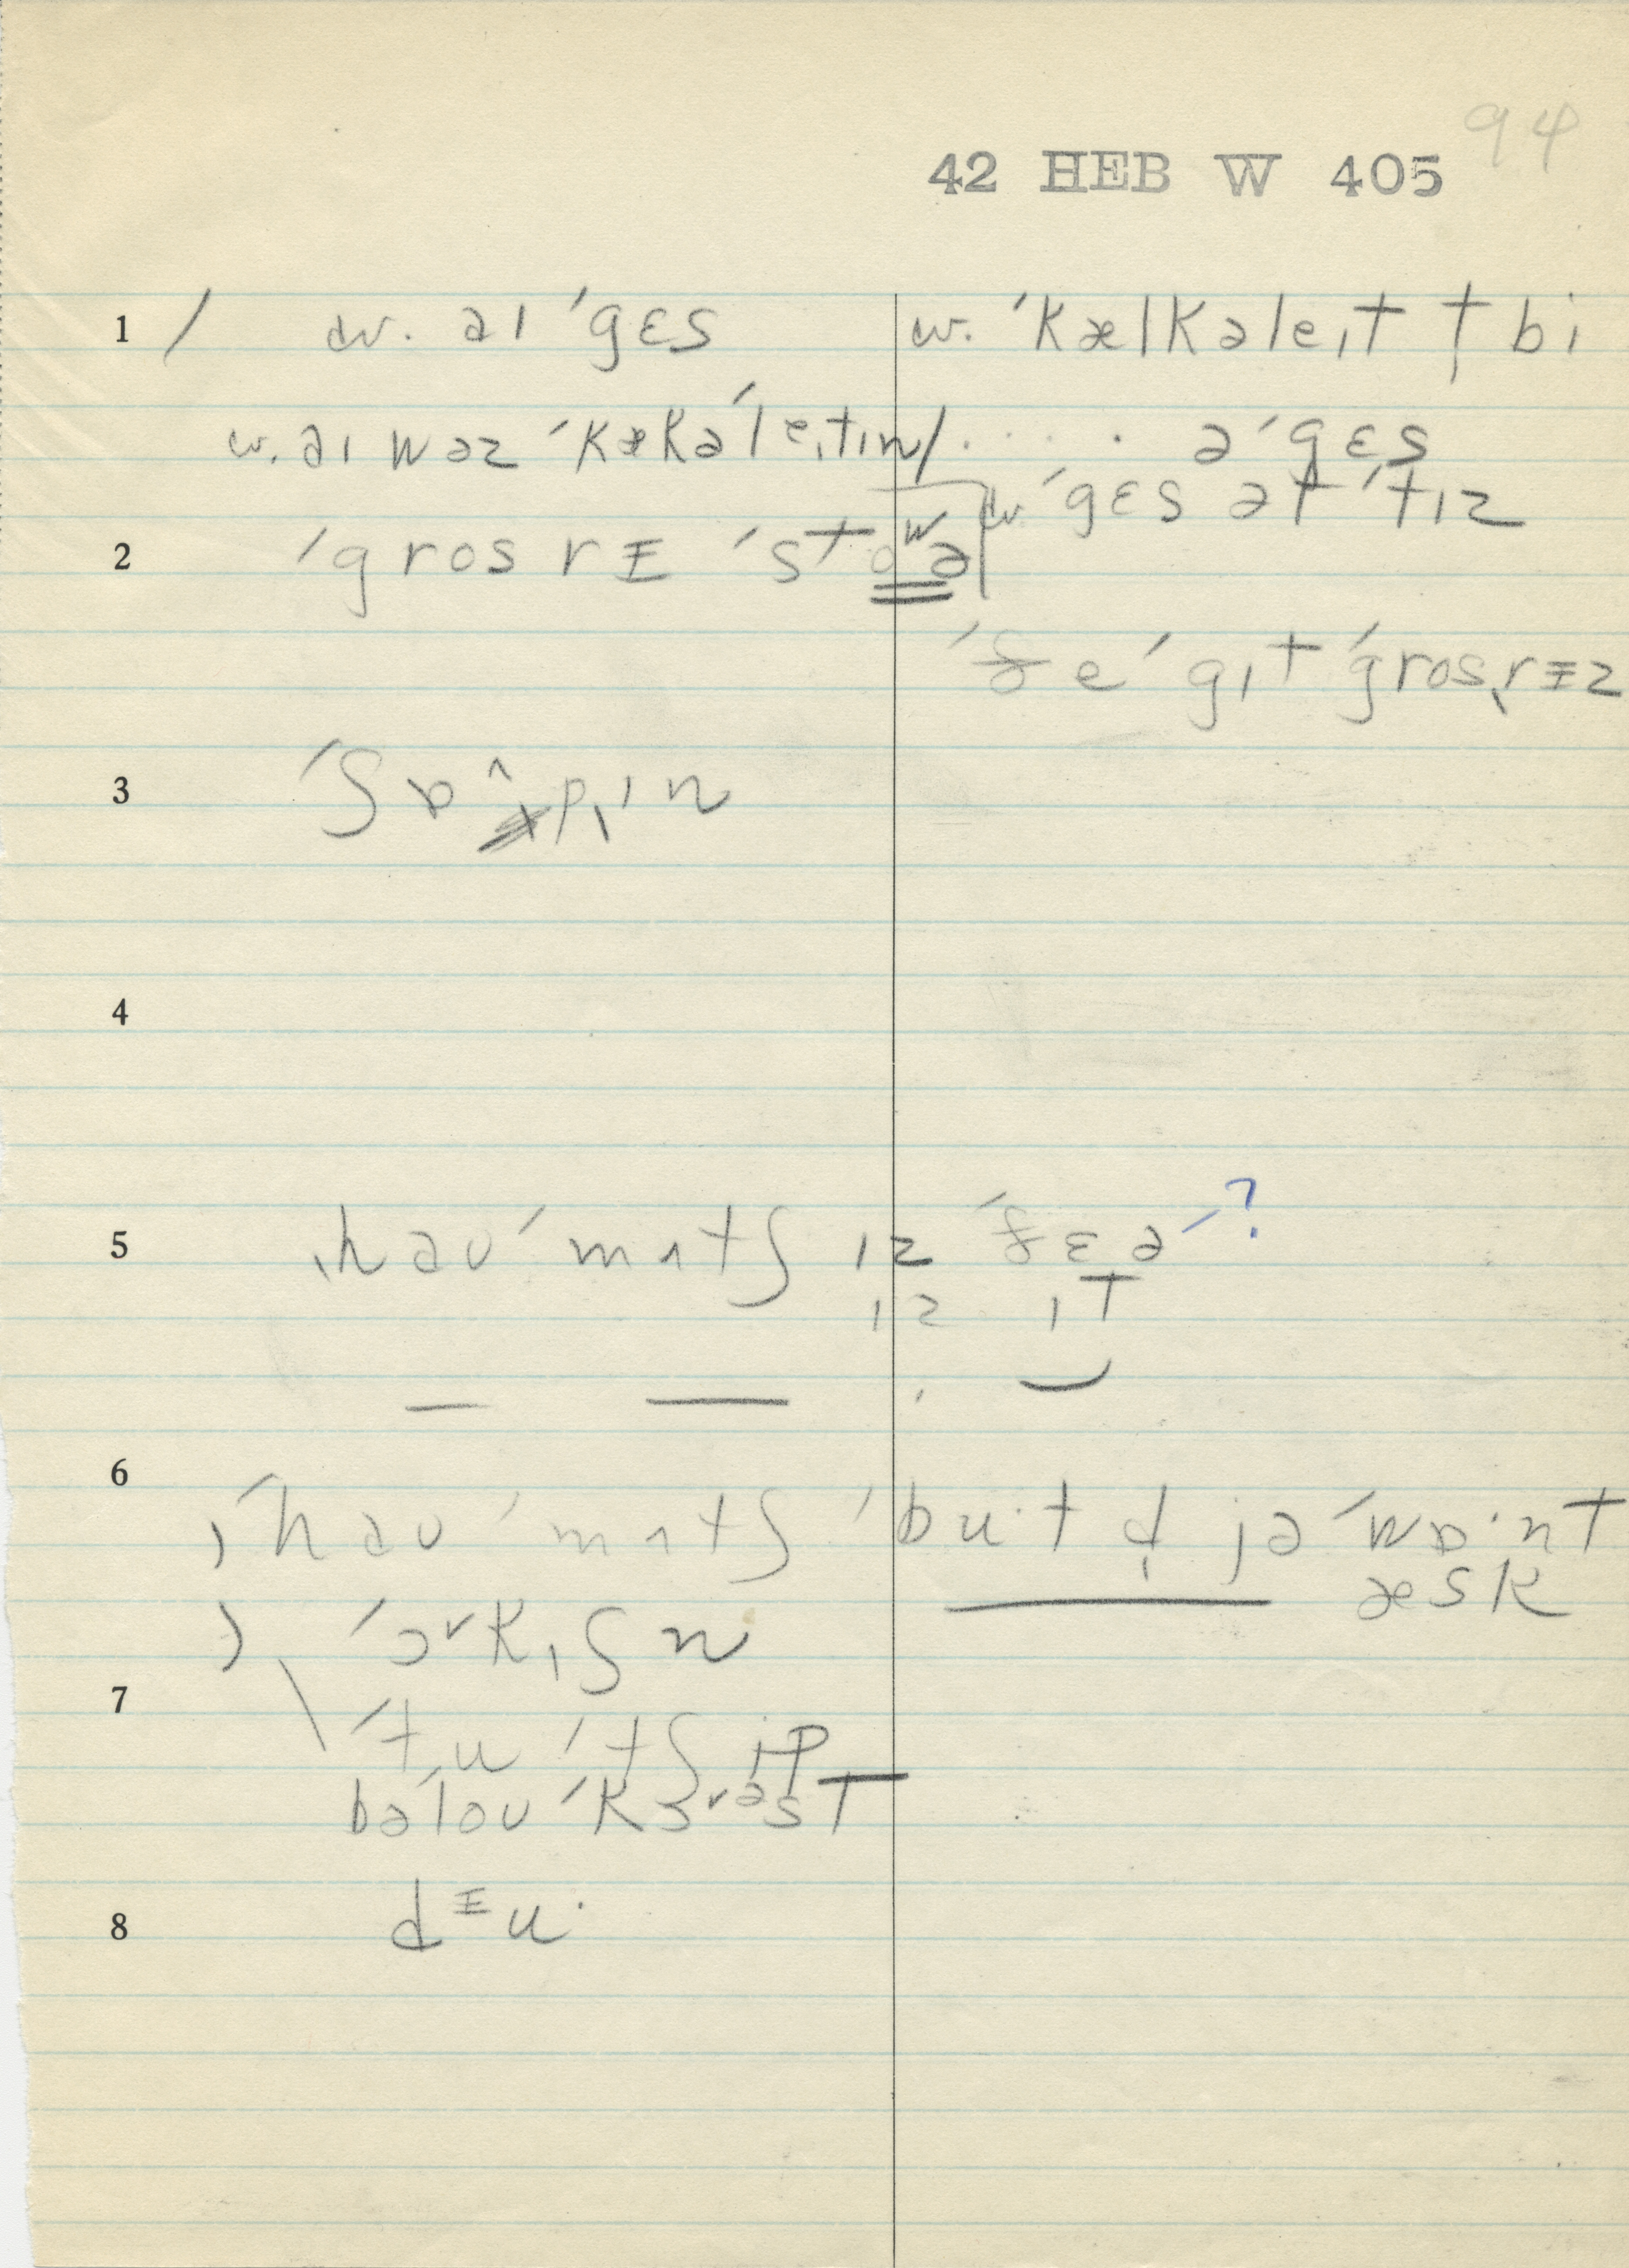 94
42 HEB W 405
1 / w. aɪ ˈgɛs w. ˈkælkəleɪt t bi
w. aɪ wəz ˈkækəˈleɪtɪn/ . . . . . ə ˈgɛs
w ˈgɛs ət ˈtɪz
2 ˈgros rɪ ˈstoʷə
ðe ˈgɪt ˈgrosˌrɪz
3 ˈʃɒ^pɪn
4
5 ˌhaʊ ˈmʌtʃ ɪz ðɛə ˈ?
ɪz ɪt
6 ˌˈhaʊ ˈmʌtʃ ˈbu·t d̩ jə ˈwɒ·nt
æsk
ˈɔrkˌɪʃn
7 ˈtu ˈtʃip
bəˈloʊ ˈkɜrəst
8 dɪu·